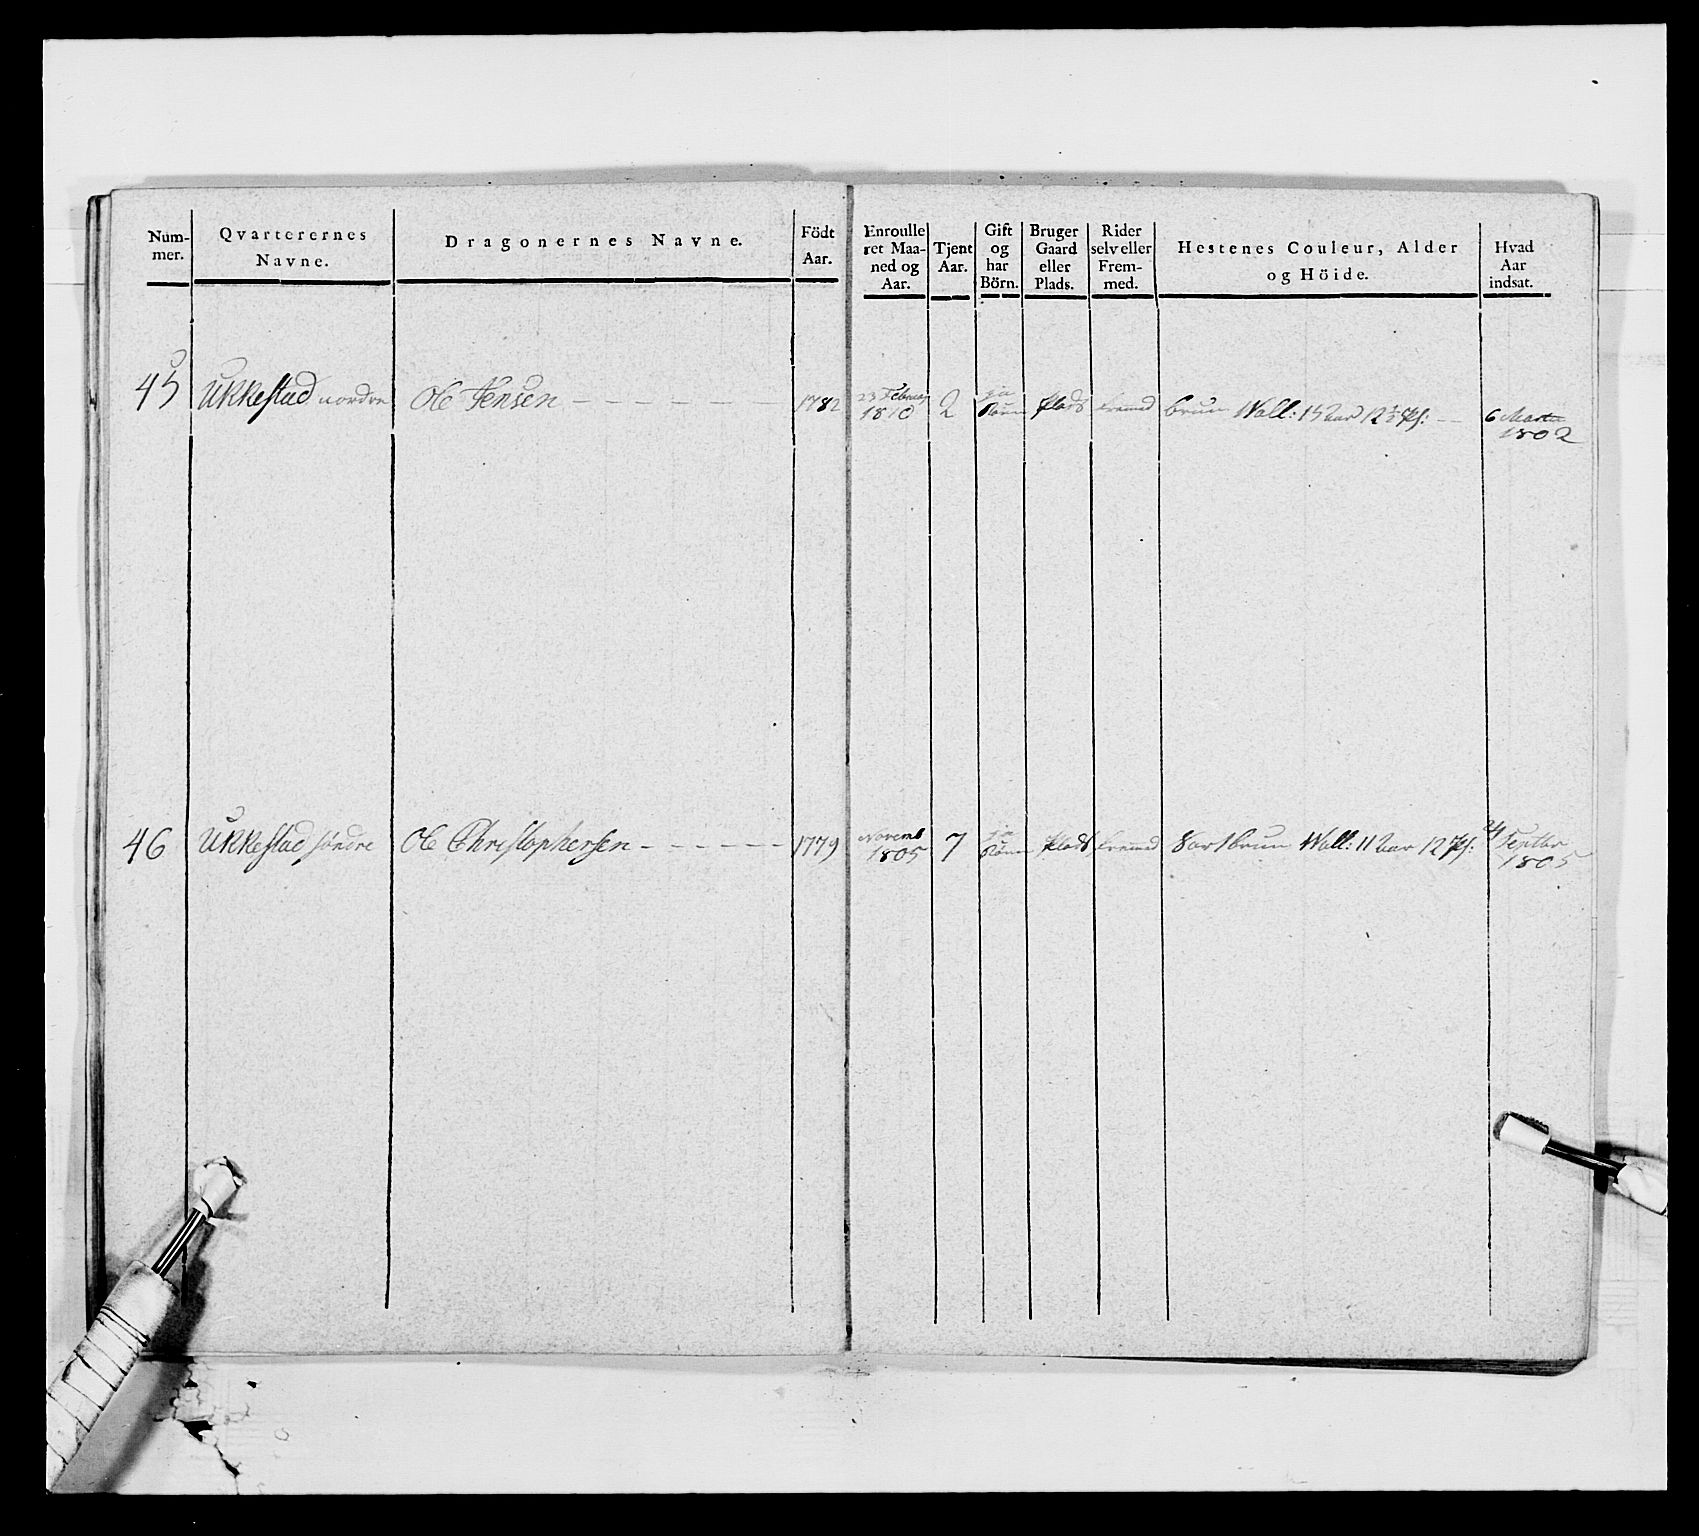 Num-
mer.
Qvarterernes
Navne.
Dragonernes Navne.
Födt
Aar.
Enroulle
ret Maa-
ned og
Aar.
Tjent
Aar.
Gift
og
har
Börn.
Bruger
Gaard
eller
Plads.
Rider
selv eller
Frem-
med.
Hestenes Couleur, Alder
og Höide.
Hvad
Aar
indsat.
45 Ukkestad nordre Ole Jensen 1782 23 Februar
1810 2 ja
Plads Fremed brun Wall: 15 Aar 12½ 6 Martz
1802
46 Ukkestad söndre Ole Christophersen 1779 Novemb
1805 7 ja
Plads Fremed Sortbrun Wall: 11 Aar 12 24 Septbr
1805